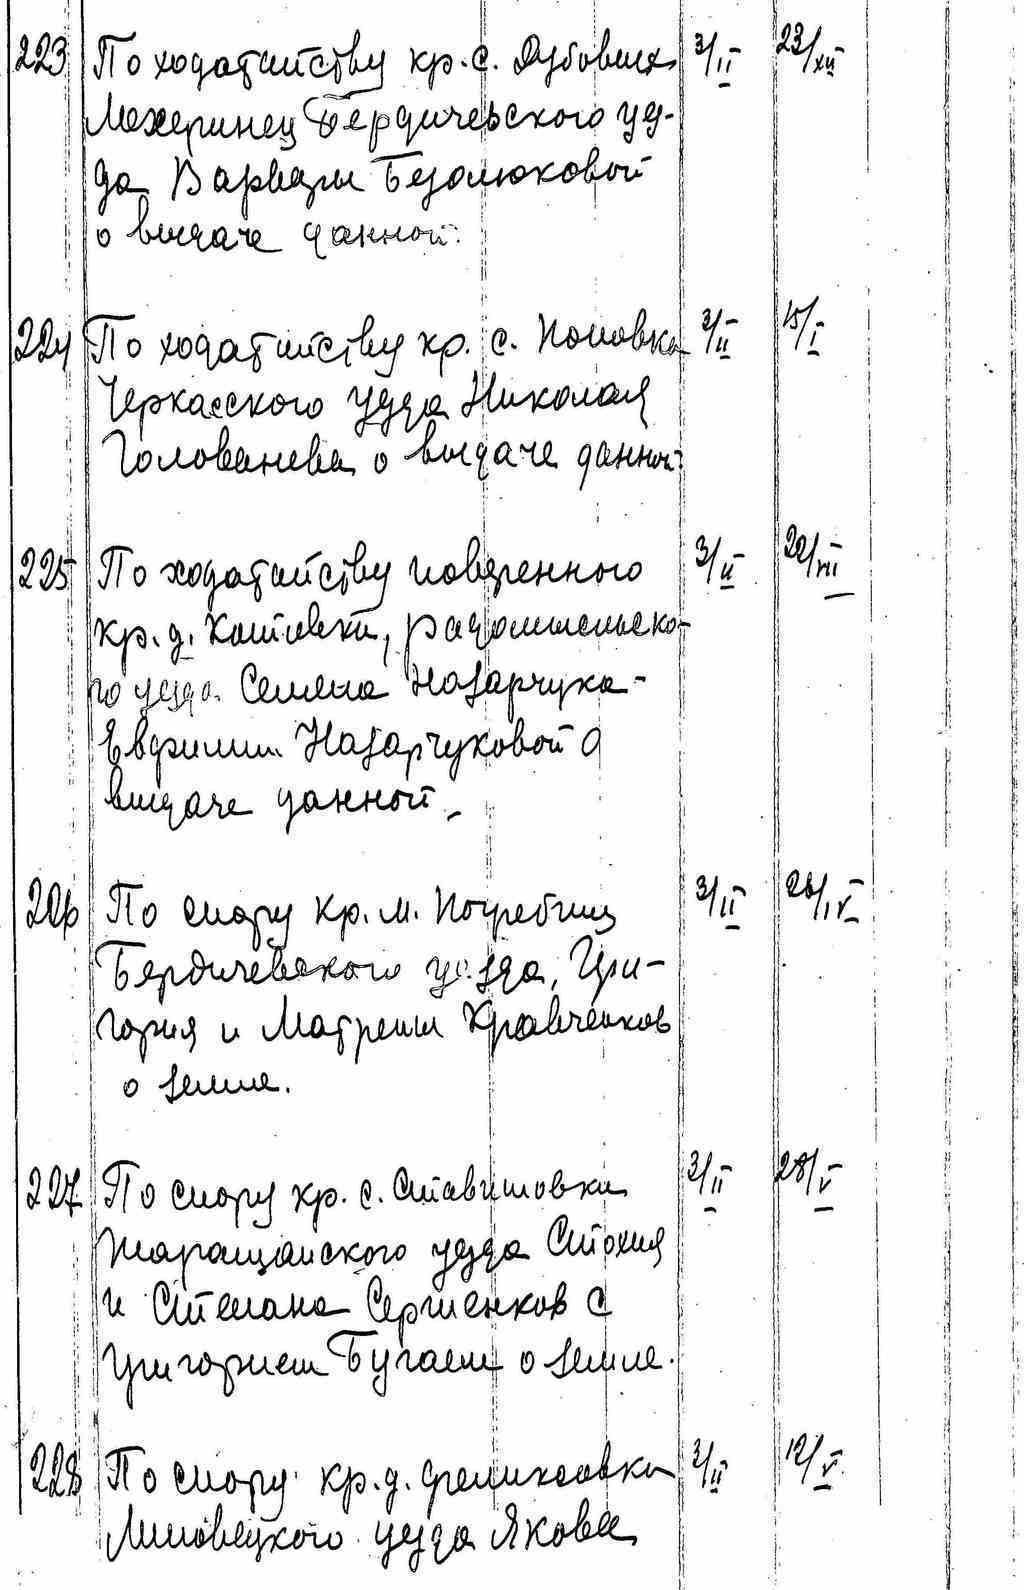 223 По ходатайству кр. с. Дубовых 3/II 23/XII
Махеринец Бердичевского уез-
да Варвары Безолюковой
о выдаче данной.
224 По ходатайству кр. с. Поповка 3/II 15/I
Черкасского уезда Николая
Голованева о выдаче данной
225 По ходатайству поверенного 3/II
кр. д. Котовки, радомысльско-
го уезда Семена Назарчука -
Евфимии Назарчуковой о
выдаче данной.
226 По спору кр. м. Погребищ 3/II 26/IV
Бердичевского уезда, Гри-
гория и Матрены Кравченков
о земле.
227 По спору кр. с. Ставищовки 3/II 28/V
Таращанского уезда
и Степана Сергиенков с
Григорием Бугаем о земле.
228 По спору кр. д. Феликсовки 3/II 12/V
Липовецкого уезда Якова